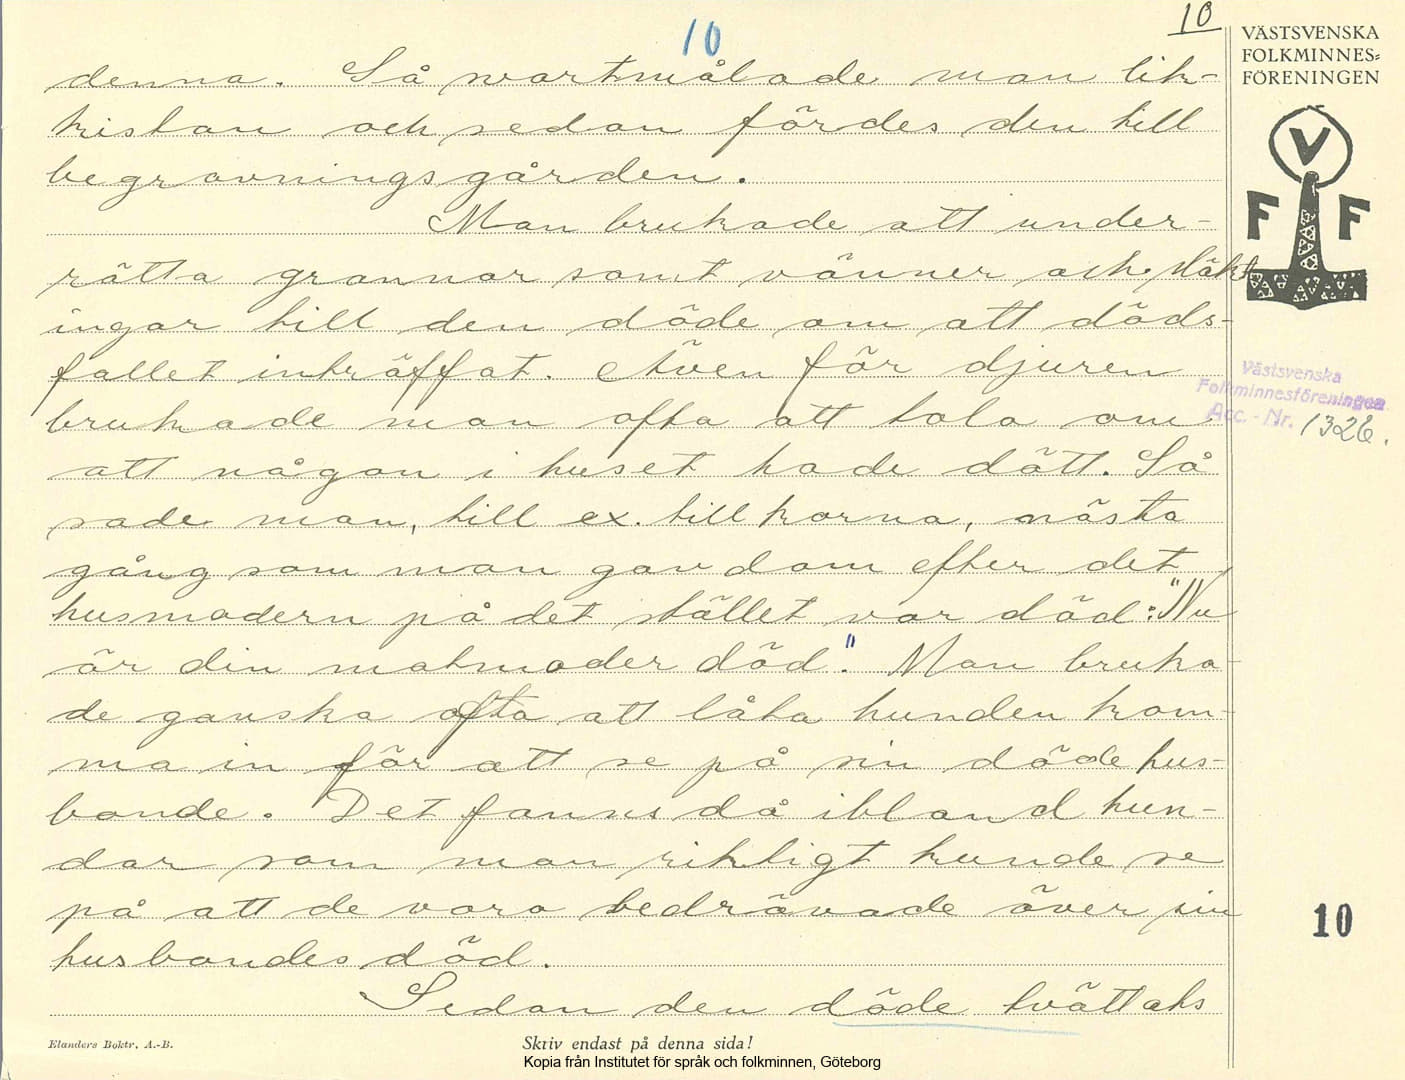 10
10
VÄSTSVENSKA
FOLKMINNES=
FÖRENINGEN
denna. Så svartmålade man lik-
kistan och sedan fördes den till
begravningsgården.
Man brukade att under-
rätta grannar samt vänner och släkt
ingar till den döde om att döds-
fallet inträffat. Även för djuren
brukade man ofta att tala om
att någon i huset hade dött. Så
sade man, till ex. till korna, nästa
gång som man gav dom efter det
husmodern på det stället var död: "Nu
är din matmoder död." Man bruka-
de ganska ofta att låta hunden kom-
ma in för att se på sin döde hus-
bonde. Det fanns då ibland hun-
dar som man riktigt kunde se
på att de voro bedrövade över sin
husbondes död.
Sedan den döde tvättats
V
F F
Västsvenska
Folkminnesföreningen
Acc. - Nr. 1326.
10
Elanders Boktr. A.-B.
Skriv endast på denna sida!
Kopia från Institutet för språk och folkminnen, Göteborg